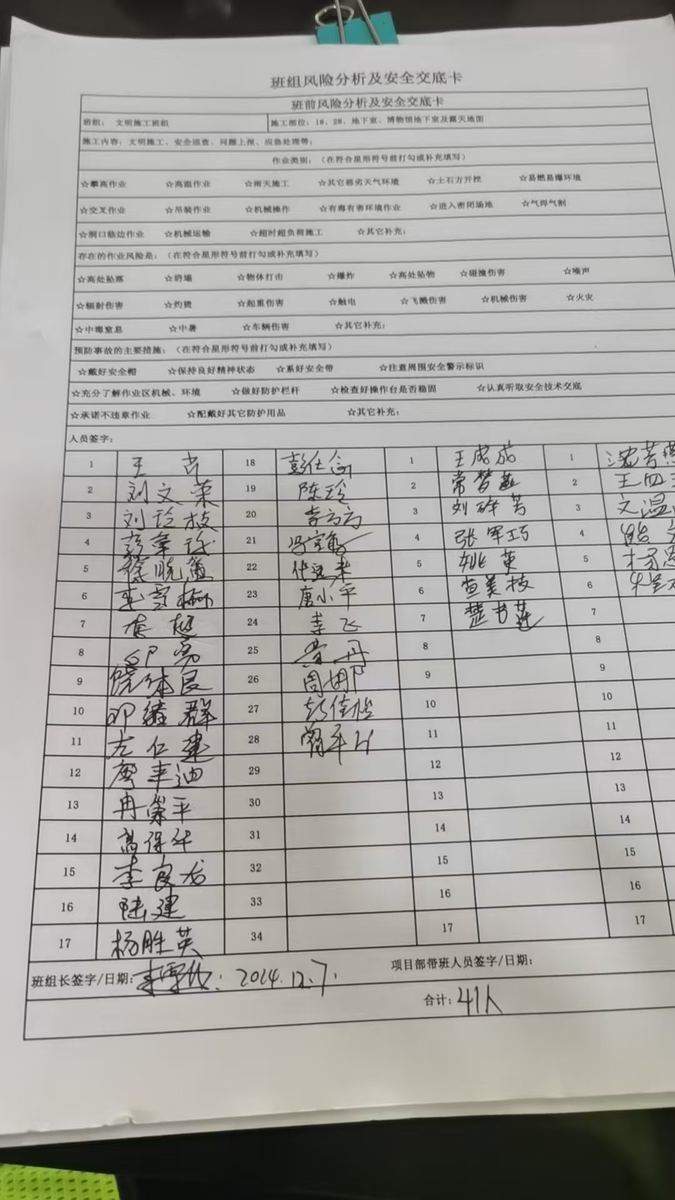 班组风险分析及安全交底卡
班前风险分析及安全交底卡
班组: 文明施工班组 施工部位: 1#、2#、地下室、博物馆地下室及露天地面
施工内容: 文明施工、安全巡查、问题上报、应急处理等;
作业类别: (在符合星形符号前打勾或补充填写)
☆攀高作业 ☆高温作业 ☆雨天施工 ☆其它恶劣天气环境 ☆土石方开挖 ☆易燃易爆环境
☆交叉作业 ☆吊装作业 ☆机械操作 ☆有毒有害环境作业 ☆进入密闭场地 ☆气焊气割
☆洞口临边作业 ☆机械运输 ☆超时超负荷施工 ☆其它补充:
存在的作业风险是: (在符合星形符号前打勾或补充填写)
☆高处坠落 ☆坍塌 ☆物体打击 ☆爆炸 ☆高处坠物 ☆碰撞伤害 ☆噪声
☆辐射伤害 ☆灼烫 ☆起重伤害 ☆触电 ☆飞溅伤害 ☆机械伤害 ☆火灾
☆中毒窒息 ☆中暑 ☆车辆伤害 ☆其它补充:
预防事故的主要措施: (在符合星形符号前打勾或补充填写)
☆戴好安全帽 ☆保持良好精神状态 ☆系好安全带 ☆注意周围安全警示标识
☆充分了解作业区机械、环境 ☆做好防护栏杆 ☆检查好操作台是否稳固 ☆认真听取安全技术交底
☆承诺不违章作业 ☆配戴好其它防护用品 ☆其它补充:
人员签字:
1 18 1 王成茄 1
2 刘文荣 19 陈玲 2 2
3 刘玲枝 20 李方方 3 3
4 21 4 张军巧 4
5 22 5 姚英 5
6 23 唐小平 6 查美枝 6
7 24 李飞 7 楚书莲 7
8 邱勇 25 黄丹 8 8
9 26 9 9
10 邓绪群 27 彭佳悦 10 10
11 左仁建 28 11 11
12 29 12 12
13 冉崇平 30 13 13
14 高保华 31 14 14
15 李良龙 32 15 15
16 陆建 33 16 16
17 杨胜英 34 17 17
班组长签字/日期: 2024.12.7. 项目部带班人员签字/日期:
合计: 41人